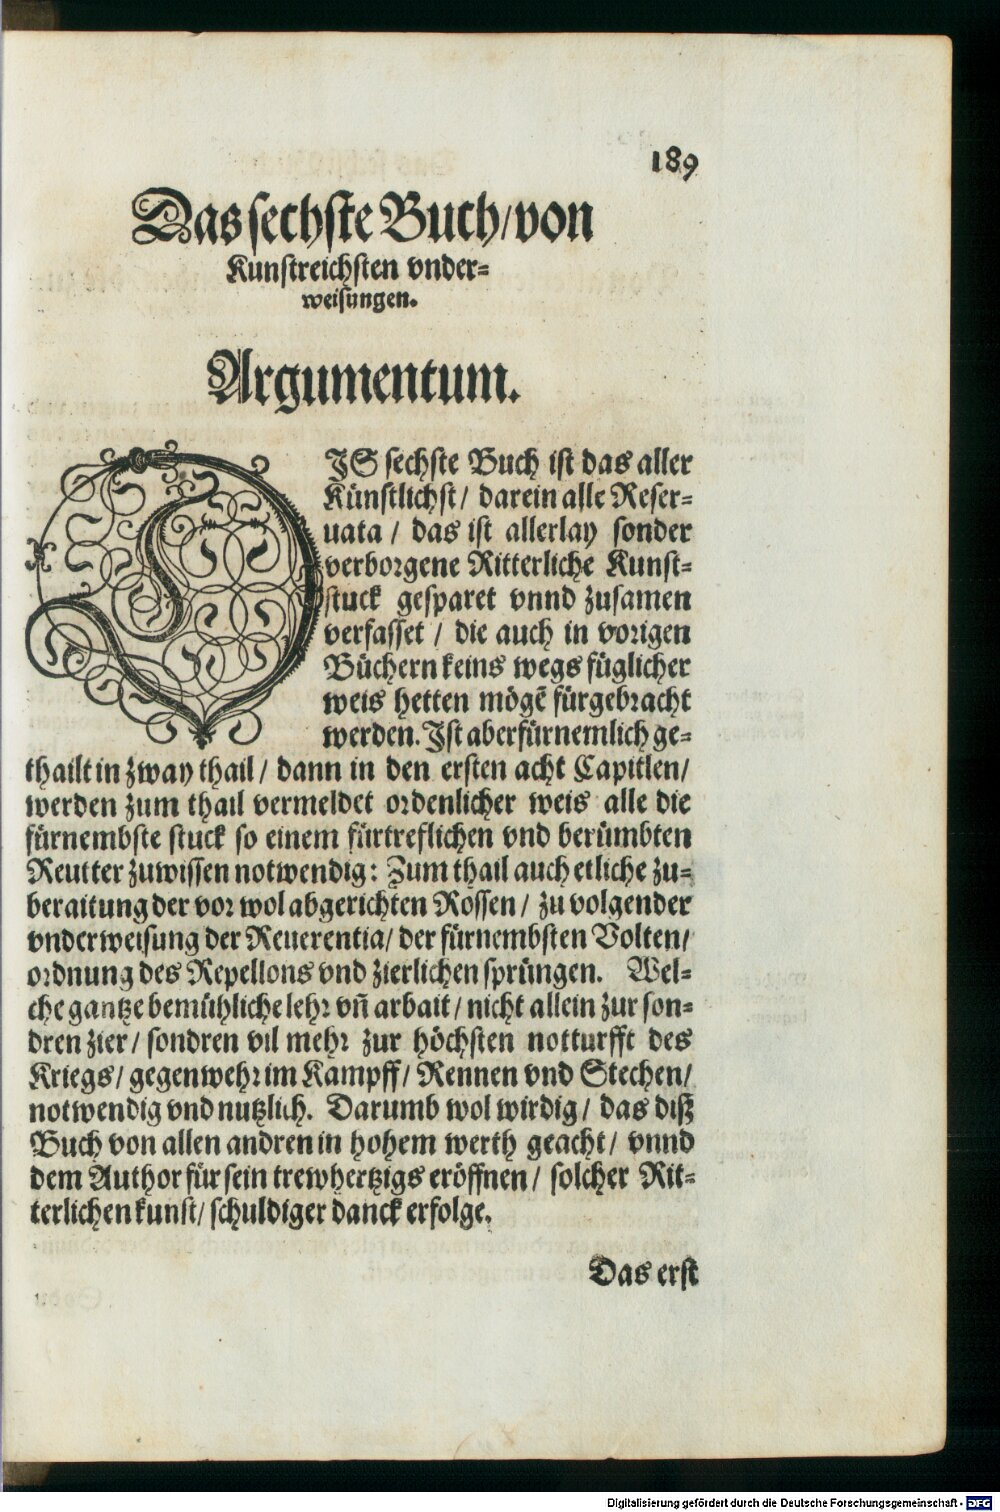 189
Das sechste Buch/von
Kunstreichsten vnder=
weisungen.
Argumentum.
DIS sechste Buch ist das aller
Künstlichst/ darein alle Reser=
uata / das ist allerlay sonder
verborgene Ritterliche Kunst=
stuck gesparet vnnd zusamen
verfasset / die auch in vorigen
Büchern keins wegs füglicher
weis hetten mögẽ fürgebracht
werden. Ist aber fürnemlich ge=
thailt in zway thail / dann in den ersten acht Capitlen/
werden zum thail vermeldet ordenlicher weis alle die
fürnembste stuck so einem fürtreflichen vnd berümbten
Reutter zuwissen notwendig: Zum thail auch etliche zu=
beraitung der vor wol abgerichten Rossen / zu volgender
vnderweisung der Reuerentia/ der fürnembsten Volten/
ordnung des Repellons vnd zierlichen sprüngen. Wel=
che gantze bemühliche lehr vñ arbait / nicht allein zur son=
dren zier / sondren vil mehr zur höchsten notturfft des
Kriegs/ gegenwehr im Kampff/ Rennen vnd Stechen/
notwendig vnd nutzlich. Darumb wol wirdig / das diß
Buch von allen andren in hohem werth geacht/ vnnd
dem Author für sein trewhertzigs eröffnen / solcher Rit=
terlichen kunst/ schuldiger danck erfolge.
Das erst
Digitalisierung gefördert durch die Deutsche Forschungsgemeinschaft - DFG